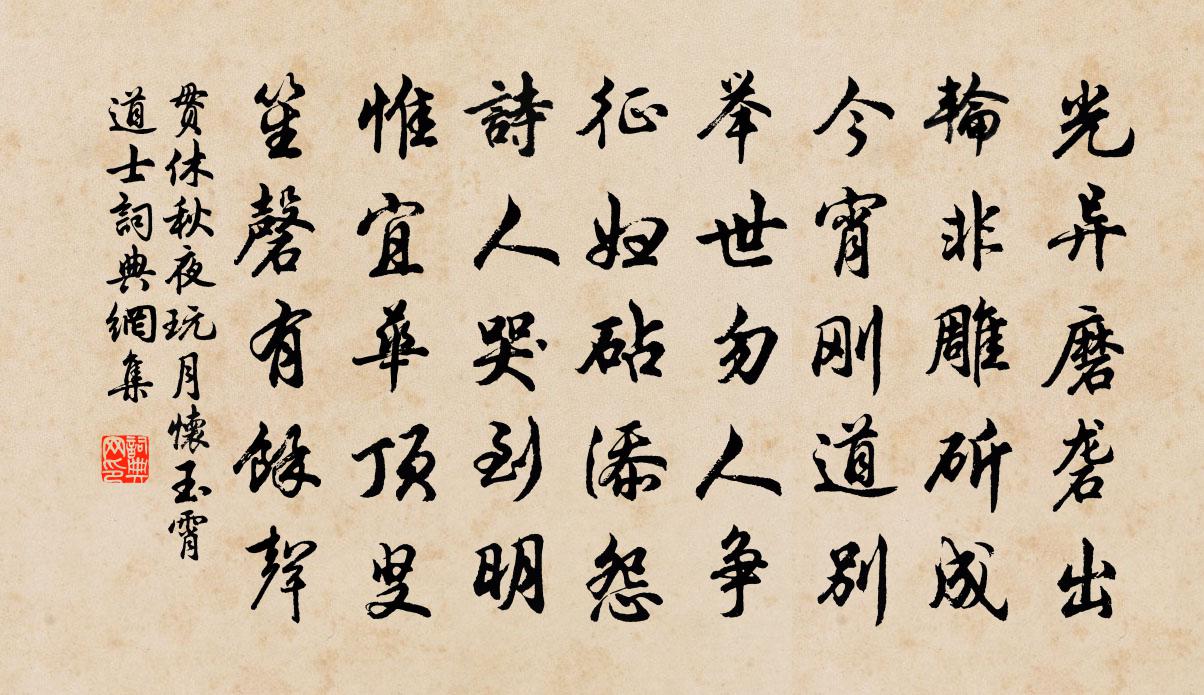 光异磨砻出
輪非雕斫成
今宵刚道别
举世勿人争
征妇砧添怨
詩人哭到明
惟宜華顶叟
笙磬有餘聲
贯休秋夜玩月懷玉霄
道士詞典網集
詞典网印